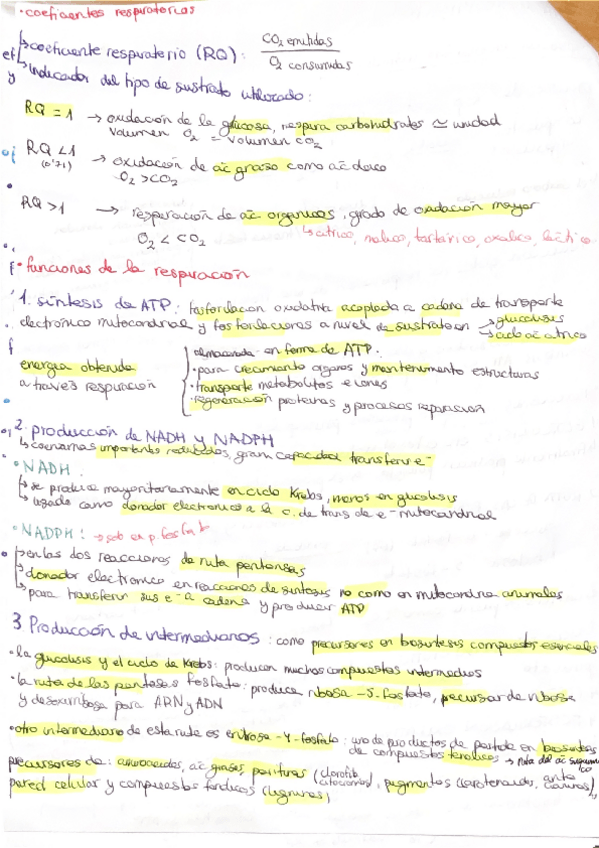 • coeficientes respiratorios
↳ coeficiente respiratorio (RQ): CO2 emitidas / O2 consumidas
↳ indicador del tipo de sustrato utilizado:
RQ = 1 → oxidación de la glucosa, respira carbohidratos ≃ unidad
volumen O2 = volumen CO2
RQ < 1 → oxidación de ác graso como ác
(0'71) O2 > CO2
RQ > 1 → respiración de ác organicos, grado de oxidación mayor
O2 < CO2 ↳ cítrico, malico, tartárico, oxalico, láctico.
• funciones de la respiración
1. síntesis de ATP: fosforilacion oxidativa acoplada a cadena de transporte
electrónico mitocondrial y fosforilaciones a nivel de sustrato en → glucolisis
→ ciclo ác citrico
energía obtenida
a través respiración
almacenada en forma de ATP.
• para crecimiento organos y mantenimiento estructuras
• transporte metabolitos e iones
• regeneración proteinas y procesos reparación
2. producción de NADH y NADPH
↳ coenzimas importantes reducidos, gran capacidad transferir e-
• NADH:
↳ se produce mayoritariamente en ciclo Krebs, menos en glucolisis
↳ usado como donador electronico a la c. de trans de e- mitocondrial
• NADPH: →
↳ en las dos reacciones de ruta pentosas
↳ donador electronico en reacciones de sintesis no como en mitocondria animales
↳ para transferir sus e- a cadena y producir ATP
3 Producción de intermediarios: como precursores en biosíntesis compuestos esenciales
• la glucolisis y el ciclo de Krebs: producen muchos compuestos intermedios
• la ruta de las pentosas fosfato: produce ribosa-5-fosfato, precursor de ribosa
y desoxirribosa para ARN y ADN
• otro intermediario de esta ruta es eritrosa-4-fosfato: uno de productos de partida en biosíntesis
de compuestos fenolicos → ruta del ác
precursores de: aminoacidos, ác grasos, porfirinas (clorofila, citocromos), pigmentos (carotenoides, antocianinas),
pared celular y compuestos fenolicos (ligninas)